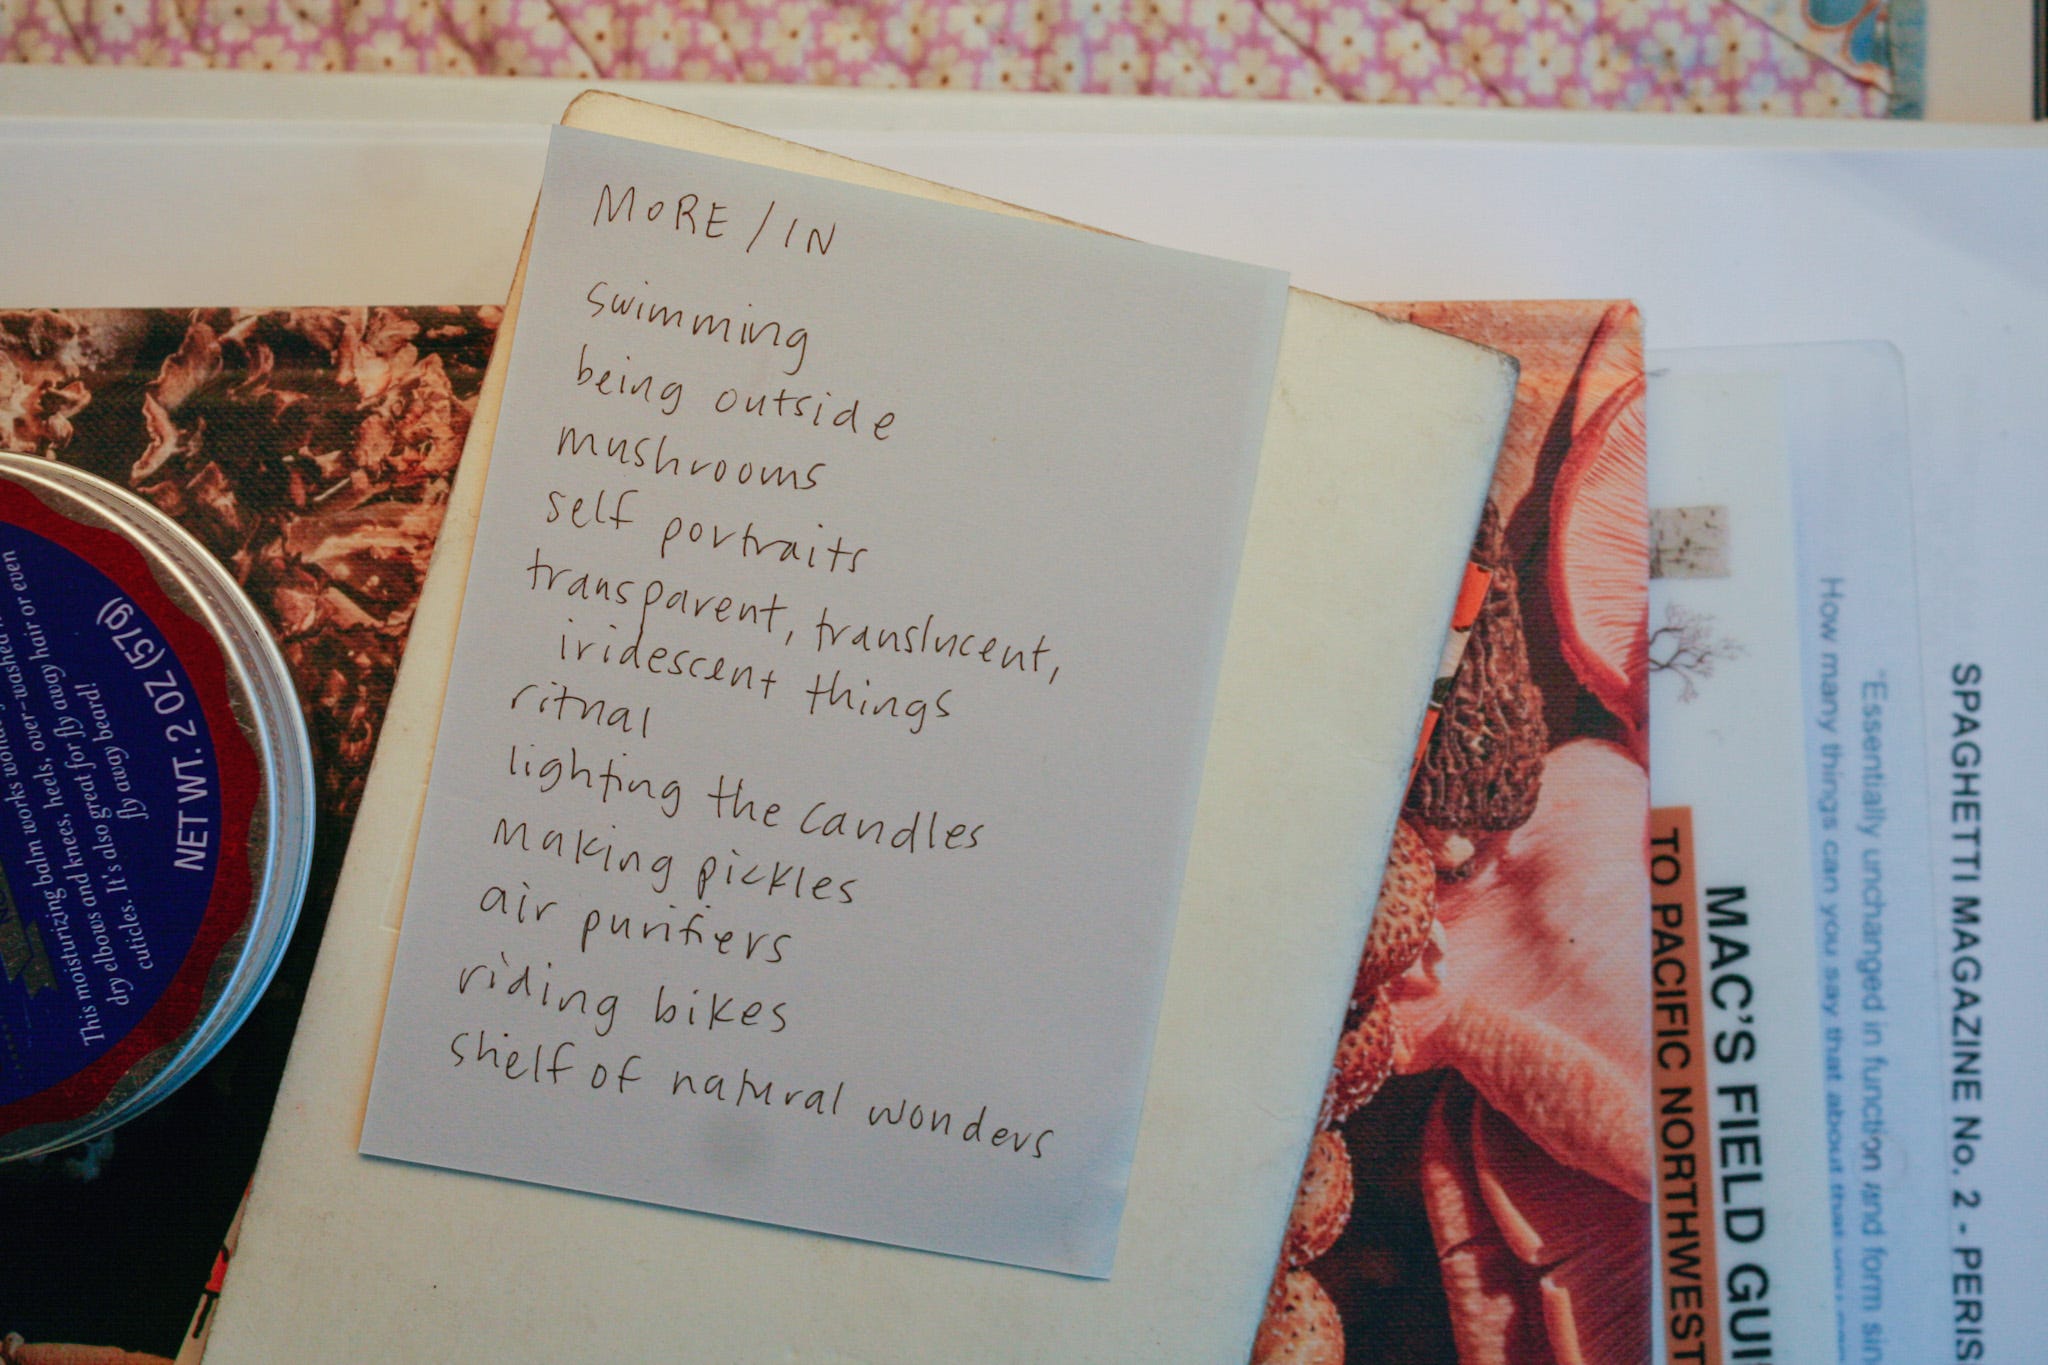 MORE / IN
swimming
being outside
mushrooms
self portraits
transparent, translucent,
iridescent things
ritual
lighting the candles
making pickles
air purifiers
riding bikes
shelf of natural wonders
This moisturizing balm works wonders
dry elbows and knees, heels, over-washed
cuticles. It's also great for fly away hair or even
fly away beard!
NET WT. 2 OZ (57g)
SPAGHETTI MAGAZINE No. 2 - PERIS
"Essentially unchanged in function and form sin
How many things can you say that about
MAC'S FIELD GUI
TO PACIFIC NORTHWEST